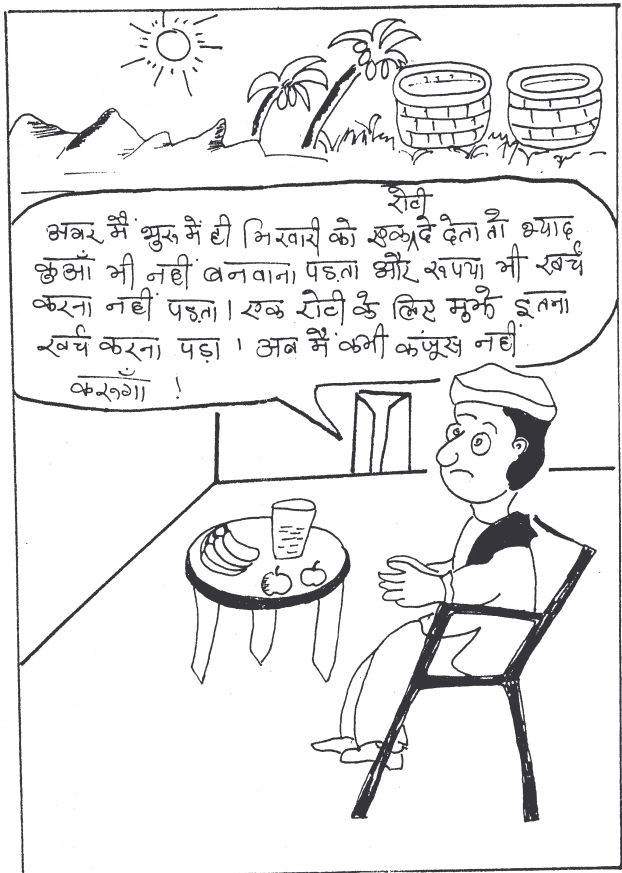 अगर मैं शुरू में ही भिखारी को एक रोटी दे देता तो श्याद
कुआँ भी नहीं बनवाना पड़ता और रूपया भी खर्च
करना नहीं पड़ता। एक रोटी के लिए मुझे इतना
खर्च करना पड़ा ! अब मैं कभी कंजूस नहीं
करूँगा !